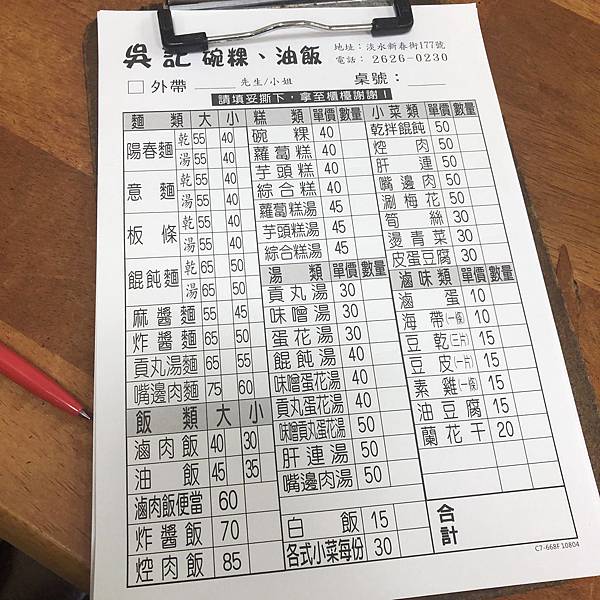 吳記 碗粿、油飯
地址：淡水新春街177號
電話：2626-0230
外帶 先生/小姐 桌號：
請填妥撕下，拿至櫃檯謝謝！
麵類 大 小
陽春麵 乾 55 40
湯 55 40
意麵 乾 55 40
湯 55 40
板條 乾 55 40
湯 55 40
餛飩麵 乾 65 50
湯 65 50
麻醬麵 55 45
炸醬麵 65 50
貢丸湯麵 65 55
嘴邊肉麵 75 60
飯類 大 小
滷肉飯 40 30
油飯 45 35
滷肉飯便當 60
炸醬飯 70
焢肉飯 85
糕類 單價 數量
碗粿 40
蘿蔔糕 40
芋頭糕 40
綜合糕 40
蘿蔔糕湯 45
芋頭糕湯 45
綜合糕湯 45
湯類 單價 數量
貢丸湯 30
味噌湯 30
蛋花湯 30
餛飩湯 40
味噌蛋花湯 40
貢丸蛋花湯 40
味噌貢丸蛋花湯 50
肝連湯 50
嘴邊肉湯 50
白飯 15
各式小菜每份 30
小菜類 單價 數量
乾拌餛飩 50
焢肉 50
肝連 50
嘴邊肉 50
涮梅花 50
筍絲 30
燙青菜 30
皮蛋豆腐 30
滷味類 單價 數量
滷蛋 10
海帶(一條) 10
豆乾(三片) 15
豆皮(一片) 15
素雞(一條) 15
油豆腐 15
蘭花干 20
合計
C7-668F 10804